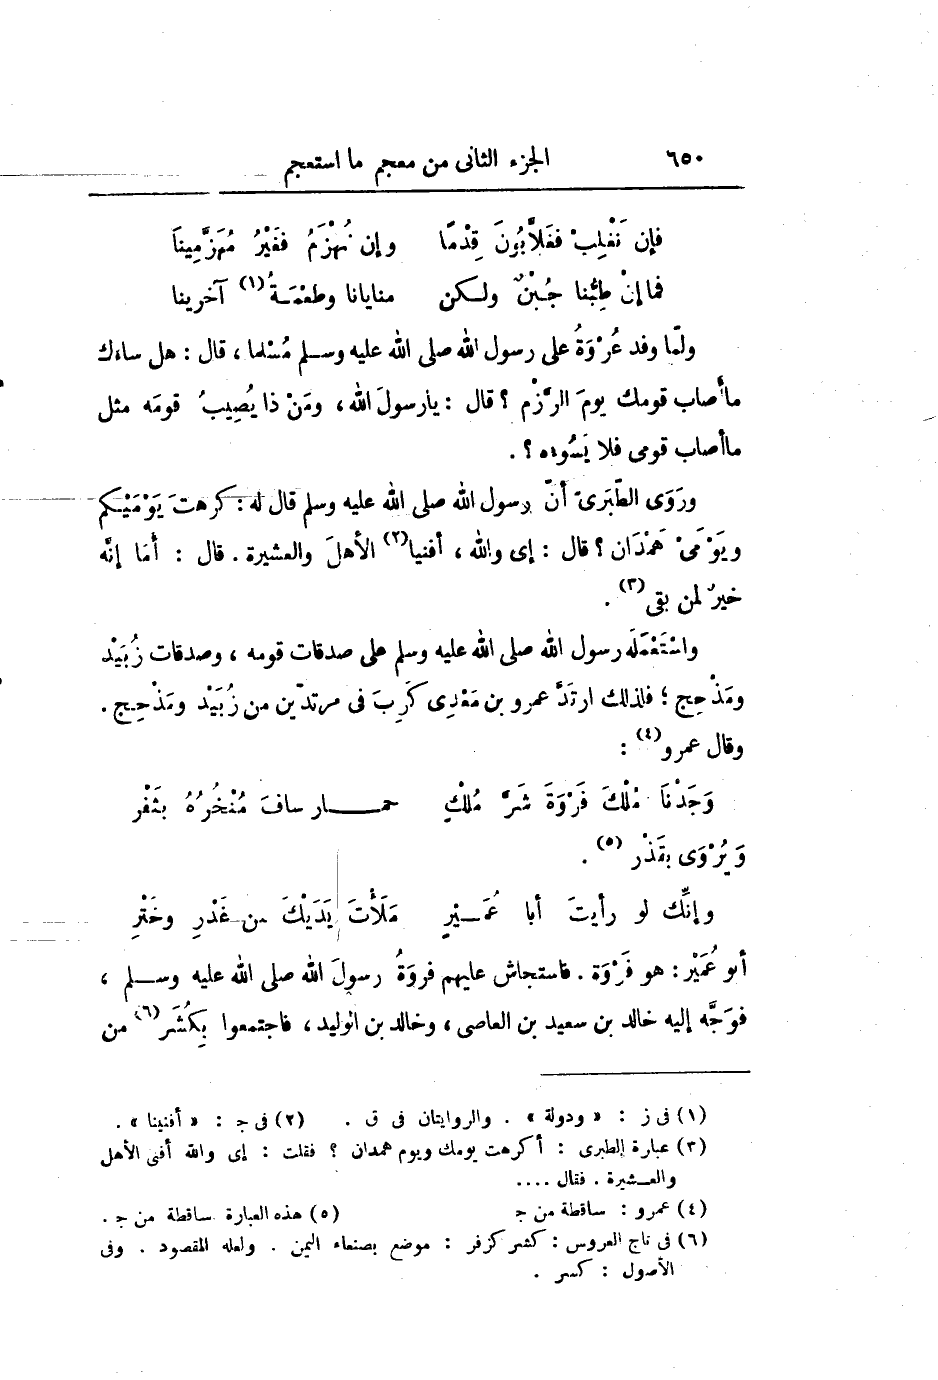 ٦٥٠ الجزء الثانى من معجم ما استعجم
فإن نَغْلِبْ فغَلاَّبُونَ قِدْمًا وإن نُهْزَمُ فغَيْرُ مُهَزَّمِينَا
فما إنْ طِبُّنا جُبْنٌ ولكن منايانا وطعْمَةُ (١) آخرينا
ولمّا وفد عُرْوَةُ على رسول الله صلى الله عليه وسلم مُسْلما ، قال : هل ساءك
ماأصاب قومك يومَ الرَّزْم ؟ قال : يارسولَ الله ، ومَنْ ذا يُصِيبُ قومَه مثل
ماأصاب قومى فلا يَسُوءه ؟ .
ورَوَى الطّبَرىّ أنّ رسول الله صلى الله عليه وسلم قال له : كرهتَ يَوْمَيْكم
ويَوْمَىْ هَمْدَان ؟ قال : إى والله ، أفنيا (٢) الأهلَ والعشيرة . قال : أمَا إنَّه
خيرٌ لمن بقى (٣) .
واسْتَعْمَلَه رسول الله صلى الله عليه وسلم على صدقات قومه ، وصدقات زُبَيْد
ومَذْحِج ؛ فلذلك ارتَدَّ عمرو بن مَعْدِى كَرِبَ فى مرتدّين من زُبَيْد ومَذْحِج .
وقال عمرو (٤) :
وَجَدْنَا مُلْكَ فَرْوَةَ شَرَّ مُلْكٍ حمـار سافَ مُنْخُرُهُ بثَفْر
وَيُرْوَى بقَذْر (٥) .
وإنكَّ لو رأيتَ أبا عُمَيْرٍ مَلَأْتَ يَدَيْكَ من غَدْرٍ وخَتْرِ
أبو عُمَيْر : هو فَرْوَة . فاستجاش عليهم فروَةُ رسولَ الله صلى الله عليه وسلم ،
فوَجَّه إليه خالد بن سعيد بن العاصى ، وخالد بن الوليد ، فاجتمعوا بِكُشَر (٦) من
(١) فى ز : « ودولة » . والروايتان فى ق . (٢) فى ج : « أفنينا » .
(٣) عبارة الطبرى : أكرهت يومك ويوم همدان ؟ فقلت : إى والله أفنى الأهل
والعشيرة . فقال ....
(٤) عمرو : ساقطة من ج (٥) هذه العبارة ساقطة من ج .
(٦) فى تاج العروس : كشر كزفر : موضع بصنعاء اليمن . ولعله المقصود . وفى
الأصول : كسر .